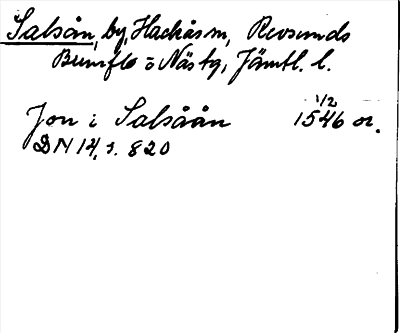 Salsån, by, Hackås sn, Revsunds
Brunflo o Näs tg, Jämtl. l.
Jon i Salsåån 1/2 1546 or.
DN 14, s. 820